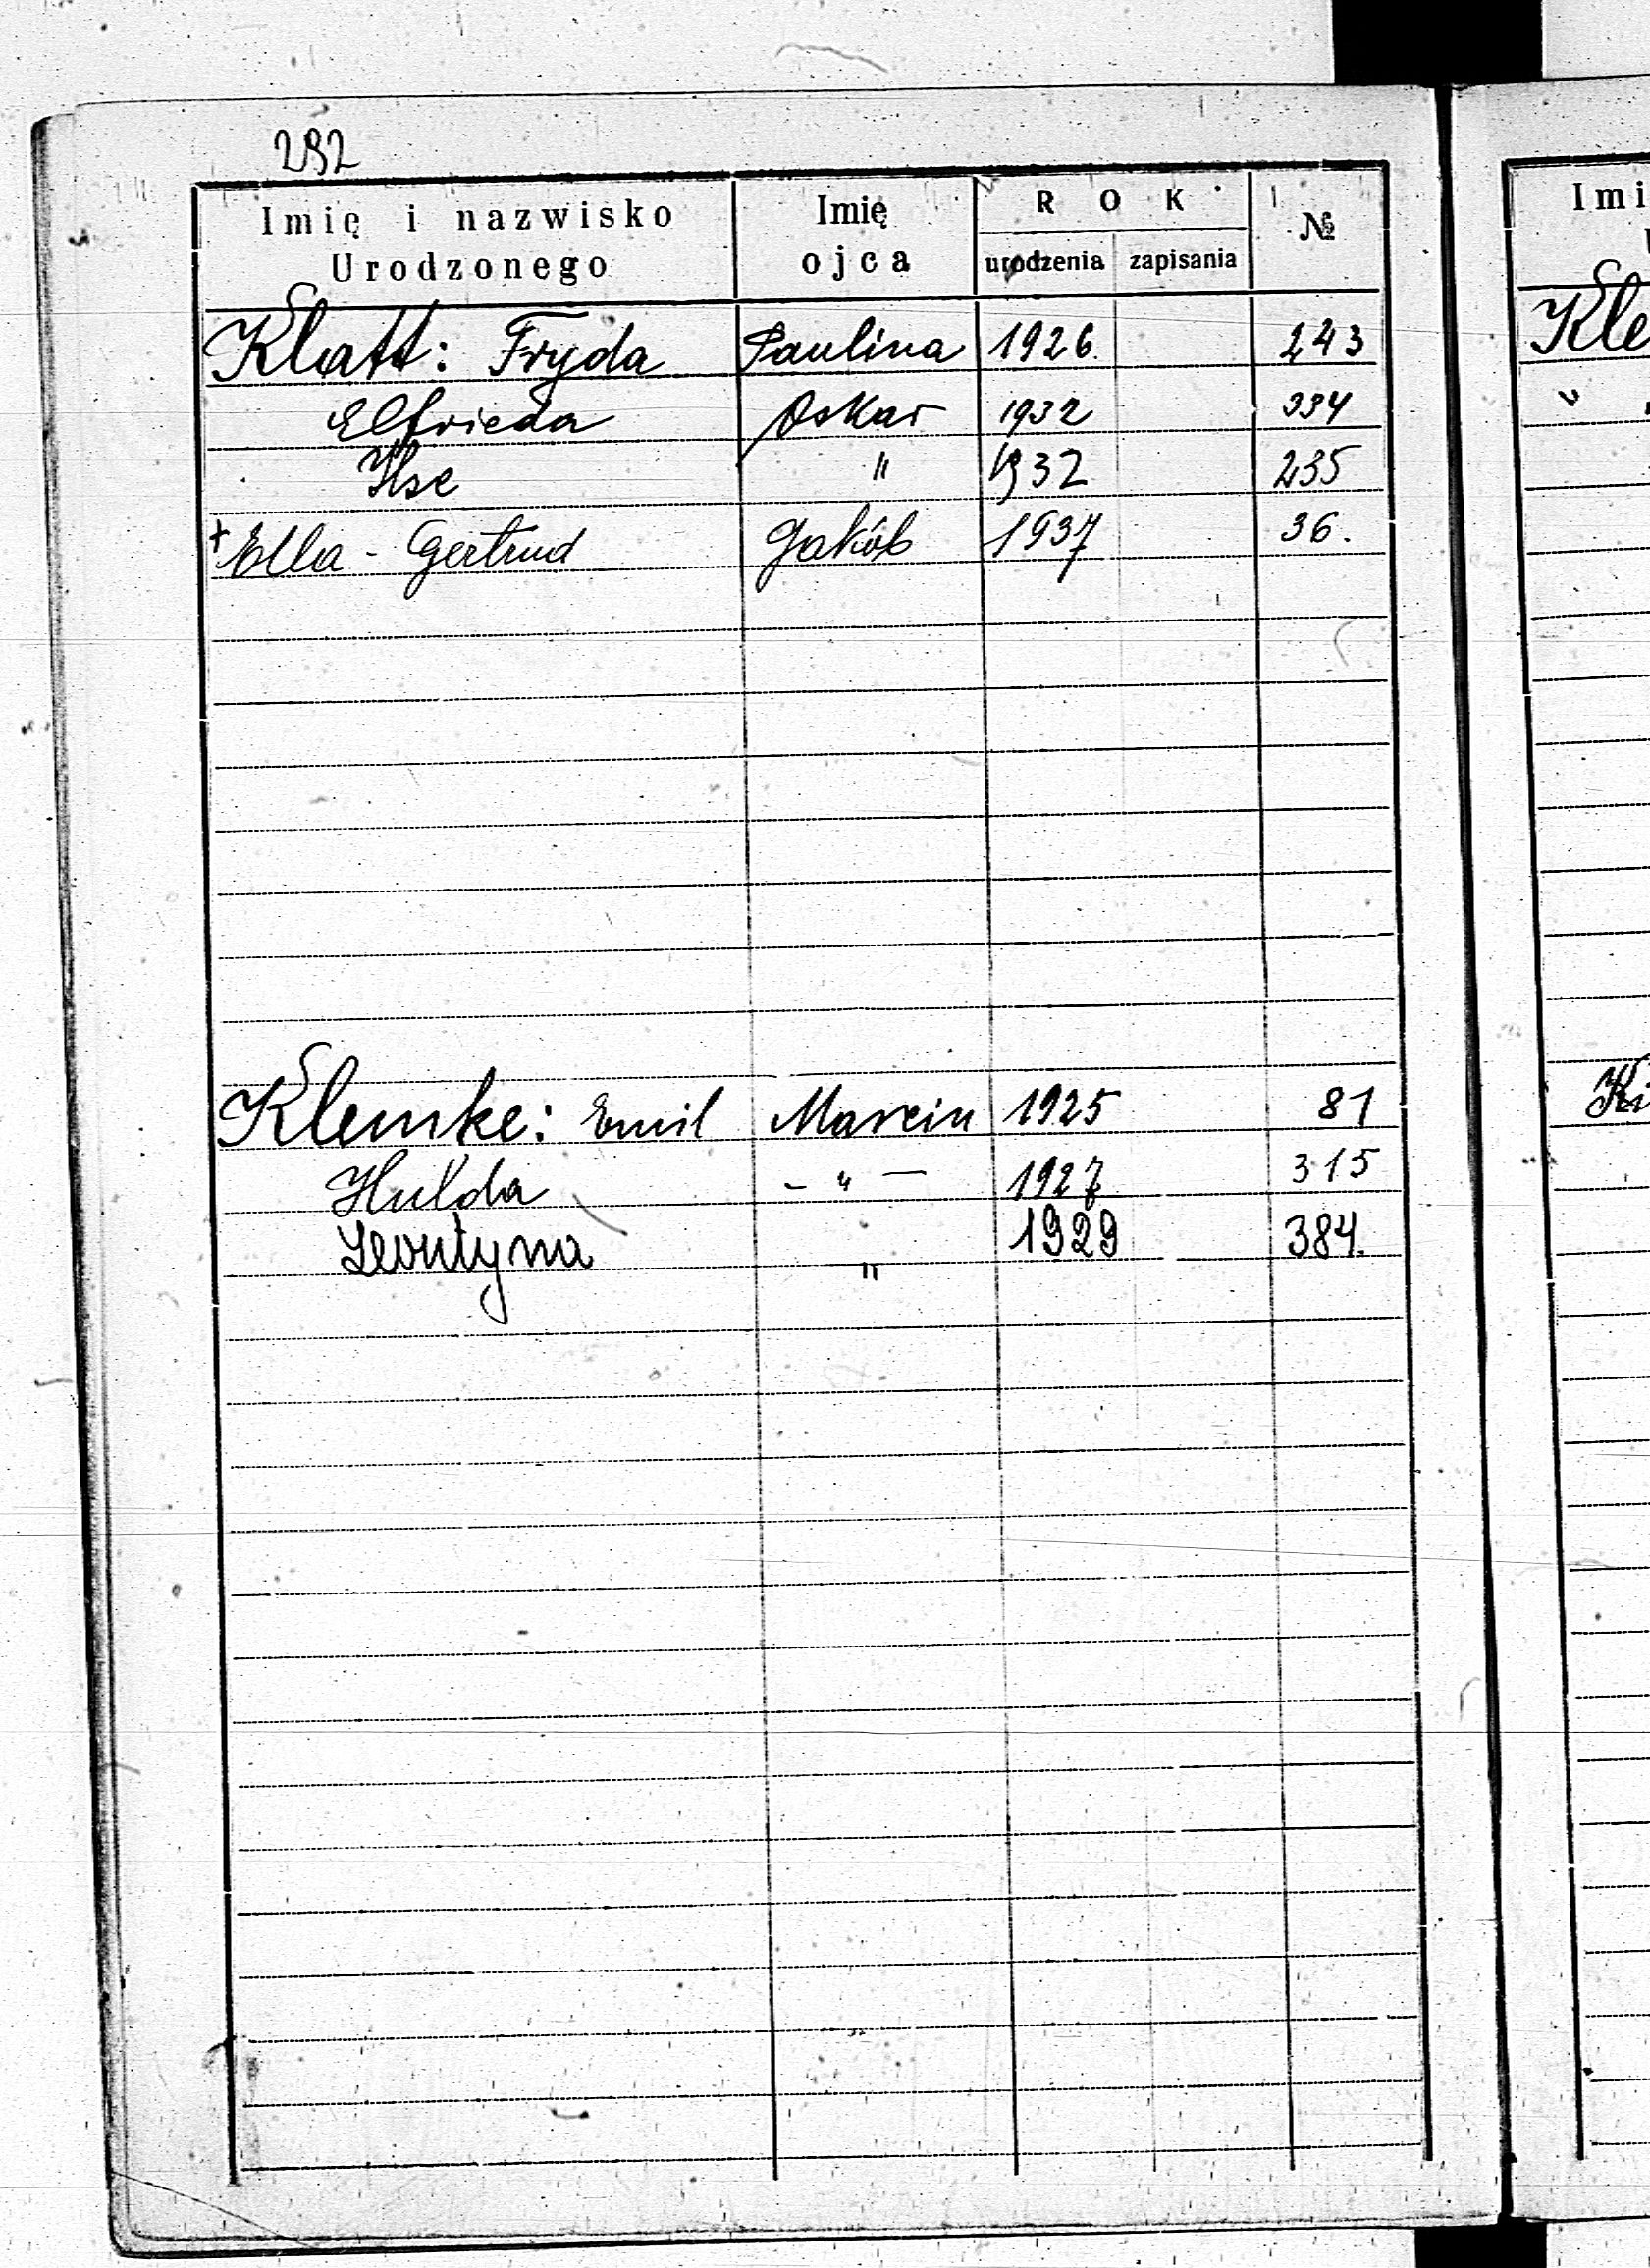 292
Imię i nazwisko Urodzonego
Imię ojca
ROK
urodzenia zapisania
№
Klatt: Fryda Paulina 1926. 243
Elfrieda Oskar 1932 334
Ilse " 1932 235
+ Ella - Gertrud Jakób 1937 36.
Klemke: Emil Marcin 1925 81
Hulda - " - 1927 315
Leontyna " 1929 384.
Imi
Kle
Ki